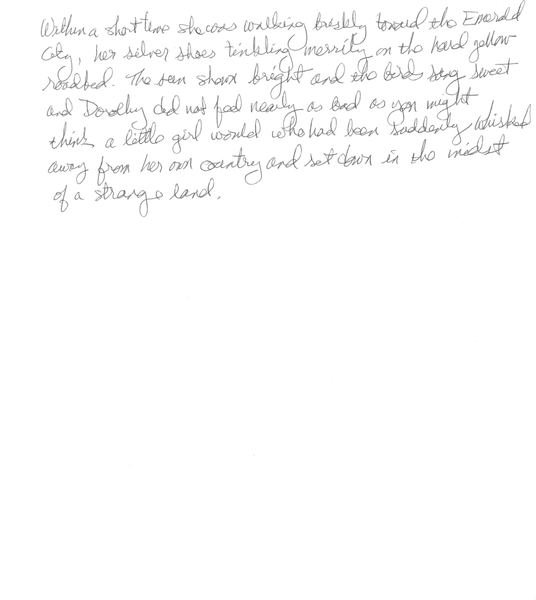 Within a short time she was walking briskly toward the Emerald
City, her silver shoes tinkling merrily on the hard yellow
roadbed. The sun shone bright and the birds sang sweet
and Dorothy did not feel nearly as bad as you might
think a little girl would who had been suddenly whisked
away from her own country and set down in the midst
of a strange land.